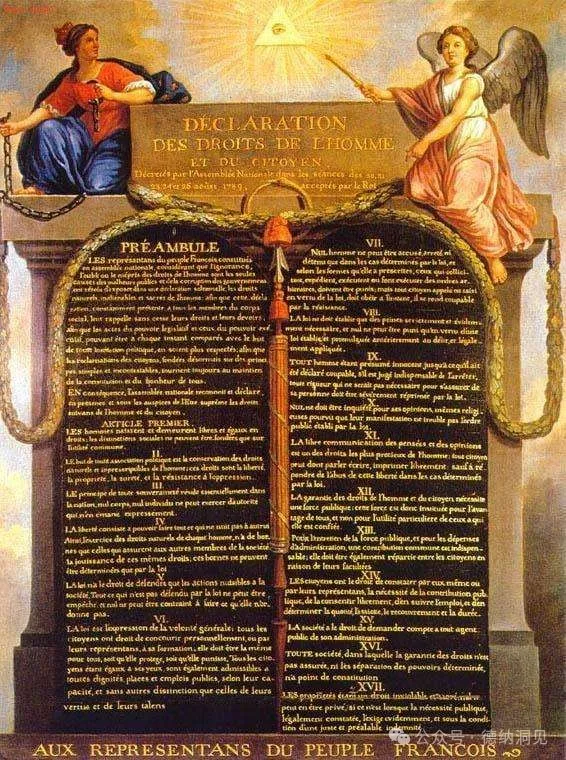 DÉCLARATION
DES DROITS DE L'HOMME
ET DU CITOYEN
Décrétés par l'Assemblée Nationale dans les séances des 20, 21
23, 24 et 26 août 1789, acceptés par le Roi
PRÉAMBULE
LES représentans du peuple François, constitués
en assemblée nationale, considérant que l'ignorance,
l'oubli ou le mépris des droits de l'homme sont les seules
causes des malheurs publics et de la corruption des gouvernemens
ont résolu d'exposer dans une déclaration solemnelle, les droits
naturels, inaliénables et sacrés de l'homme; afin que cette, décla
ration, constamment présente a tous les membres du corps
social, leur rappelle sans cesse leurs droits et leurs devoirs;
afin que les actes du pouvoir législatif et ceux du pouvoir exé
cutif, pouvant être a chaque instant comparés avec le but
de toute institution politique, en soient plus respectés; afin que
les réclamations des citoyens, fondées désormais sur des princi
pes simples et incontestables, tournent toujours au maintien
de la constitution et du bonheur de tous.
EN conséquence, l'assemblée nationale reconnoit et déclare,
en présence et sous les auspices de l'Etre suprême les droits
suivans de l'homme et du citoyen.
ARTICLE PREMIER.
LES hommes naissent et demeurent libres et égaux en
droits; les distinctions sociales ne peuvent être fondées que sur
l'utilité commune.
II.
LE but de toute association politique est la conservation des droits
naturels et imprescriptibles de l'homme; ces droits sont la liberté,
la propriété, la sureté, et la résistance à l'oppression.
III.
LE principe de toute souveraineté réside essentiellement dans
la nation, nul corps, nul individu ne peut exercer d'autorité
qui n'en emane expressement.
IV.
LA liberté consiste a pouvoir faire tout ce qui ne nuit pas à autrui
Ainsi, l'exercice des droits naturels de chaque homme, n'a de bor-
nes que celles qui assurent aux autres membres de la société
la jouissance de ces mêmes droits; ces bornes ne peuvent
être déterminées que par la loi
V.
LA loi n'a le droit de défendre que les actions nuisibles à la
société. Tout ce qui n'est pas défendu par la loi ne peut être
empêché, et nul ne peut être contraint à faire ce qu'elle n'or-
donne pas.
VI.
LA loi est l'expression de la volonté générale; tous les
citoyens ont droit de concourir personnellement, ou par
leurs représentans, à sa formation; elle doit être la même
pour tous, soit qu'elle protege, soit qu'elle punisse, Tous les cito
yens étant égaux à ses yeux, sont également admissibles a
toutes dignités, places et emplois publics, selon leur ca-
pacité, et sans autres distinction que celles de leurs
vertus et de leurs talens
VII.
NUL homme ne peut être accusé, arreté, ni
détenu que dans les cas déterminés par la loi, et
selon les formes qu'elle a prescrites, ceux qui sollici
tent, expédient, exécutent ou font exécuter des ordres ar-
bitraires, doivent être punis; mais tout citoyen appelé ou saisi
en vertu de la loi, doit obéir a l'instant, il se rend coupable
par la résistance.
VIII.
LA loi ne doit établir que des peines strictement et évidem-
ment nécessaire, et nul ne peut être puni qu'en vertu d'une
loi établie et promulguée antérierement au délit, et légale-
ment appliquée.
IX.
TOUT homme étant présumé innocent jusqu'a ce qu'il ait
été déclaré coupable, s'il est jugé indispensable de l'arrêter,
toute rigueur qui ne serait pas nécessaire pour s'assurer de
sa personne doit être sévèrement réprimée par la loi.
X.
NUL ne doit être inquiété pour ses opinions, mêmes religi
euses pourvu que leur manifestation ne trouble pas l'ordre
public établi par la loi.
XI.
LA libre communication des pensées et des opinions
est un des droits les plus precieux de l'homme; tout citoyen
peut dont parler écrire, imprimer librement; sauf à ré-
pondre de l'abus de cette liberté dans les cas déterminés
par la loi.
XII.
LA garantie des droits de l'homme et du citoyen nécessite
une force publique; cette force est donc instituée pour l'avan
tage de tous, et non pour l'utilité particuliere de ceux a qui
elle est confiée.
XIII.
POUR l'entretien de la force publique, et pour les dépenses
d'administration, une contribution commune est indispen-
sable; elle doit être également répartie entre les citoyens en
raison de leurs facultées
XIV.
LES citoyens ont le droit de constater par eux même ou
par leurs représentans, la nécessité de la contribution pub
lique, de la consentir librement, d'en suivre l'emploi, et d'en
déterminer la quotité, l'assiette, le recouvrement et la durée.
XV.
LA société a le droit de demander compte a tout agent
public de son administration.
XVI.
TOUTE société, dans laquelle la garantie des droits n'est
pas assurée, ni les séparation des pouvoirs déterminée,
n'a point de constitution
XVII.
LES propriétés étant un droit inviolable et sacré, nul ne
peut en être privé, si ce n'est lorsque la nécessité publique,
légalement constatée, l'exige évidemment, et sous la condi
tion d'une juste et préalable indemnité.
AUX REPRESENTANS DU PEUPLE FRANCOIS
公众号 · 德纳洞见